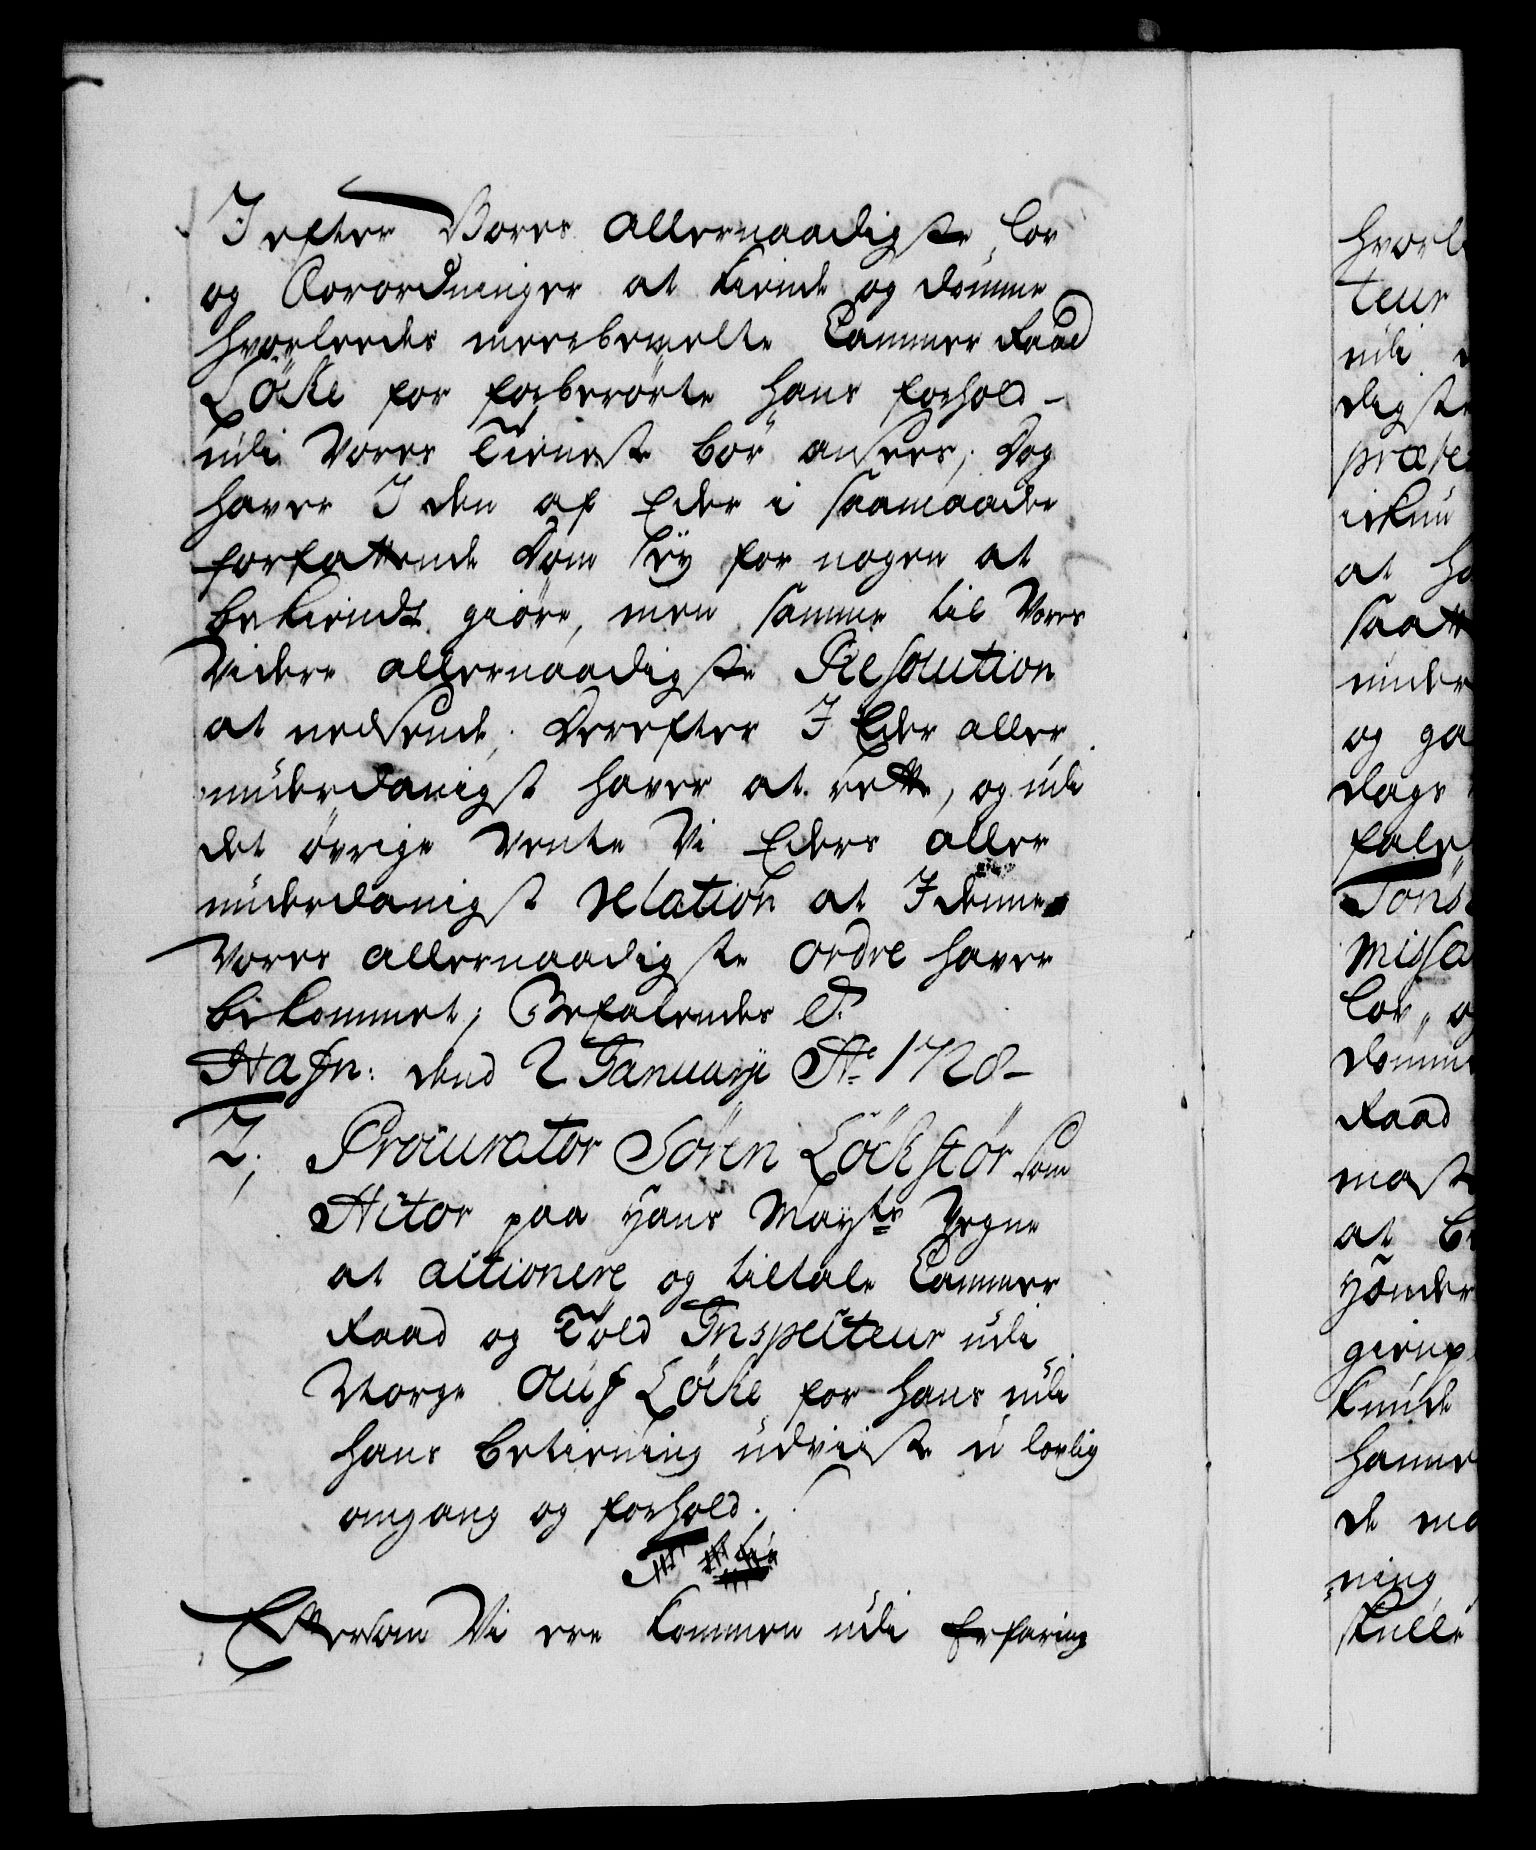 I efter Vores allernaadigste lov
og Forordninger at kiende og dømme
hvorleedes meerbemelte Cammer Raad
Löcke for forberörte hans forhold-
udi Vores Tieneste bör ansees; Dog
haver I den af Eder i saamaade
forfattende Dom Ey for nogen at
bekiendt giöre, men samme til Vores
Videre allernaadigste Resolution
at nedsende; Derefter I Eder aller
underdanigst haver at rette, og udi
det övrige vente Vi Eders aller
underdanigst relation at I denne
Vores allernaadigste ordre haver
bekommet; Befalendes &.
Hafn: dend 2 Januarii Ao 1728-
2; Procurator Sören Löckstör som
Actor paa Hans Mayts Vegne
at actionere og tiltale Cammer
Raad og Told Inspecteur udi
Norge Oluf Löcke for hans udi
hans betiening udviiste u lovlig
omgang og forhold.
Eftersom Vi ere kommen udi Erfaring
hvorl
teur
udi
digste
præte
at ha
saatt
under
og ga
dags
fale
Tøns
Missi
lov, o
dømme
Raad
at b
hannem
de ma
ning
skulle